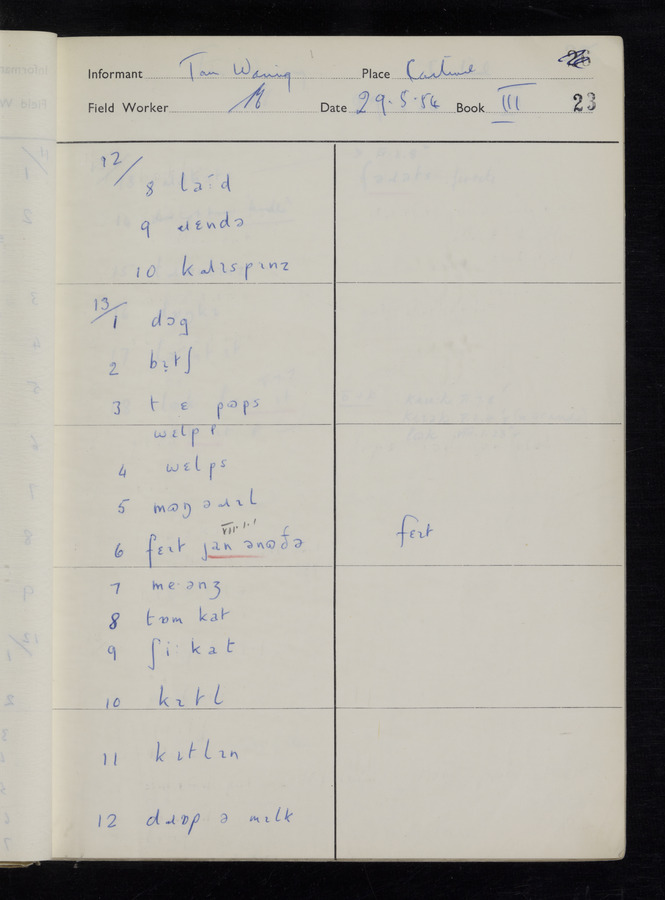 Informant Tom Waring Place Cartmel
Field Worker Date 29·5·54 Book III 23
12/
8 la·ɪd
9 ɹɛndə
10 kaɹɪspɪnz
13/
1 dɔg
2 bɪ̣tʃ
3 t ɛ pɷps
wɛlp
4 wɛlps
5 mɷŋgəɹɪl
VIII·1·1
6 fɛɪt jan ənɷðə fɛɪt
7 me·ənʒ
8 tɒm kat
9 ʃi: kat
10 kɪtl
11 kɪtlɪn
12 dɹɒp ə mɪlk